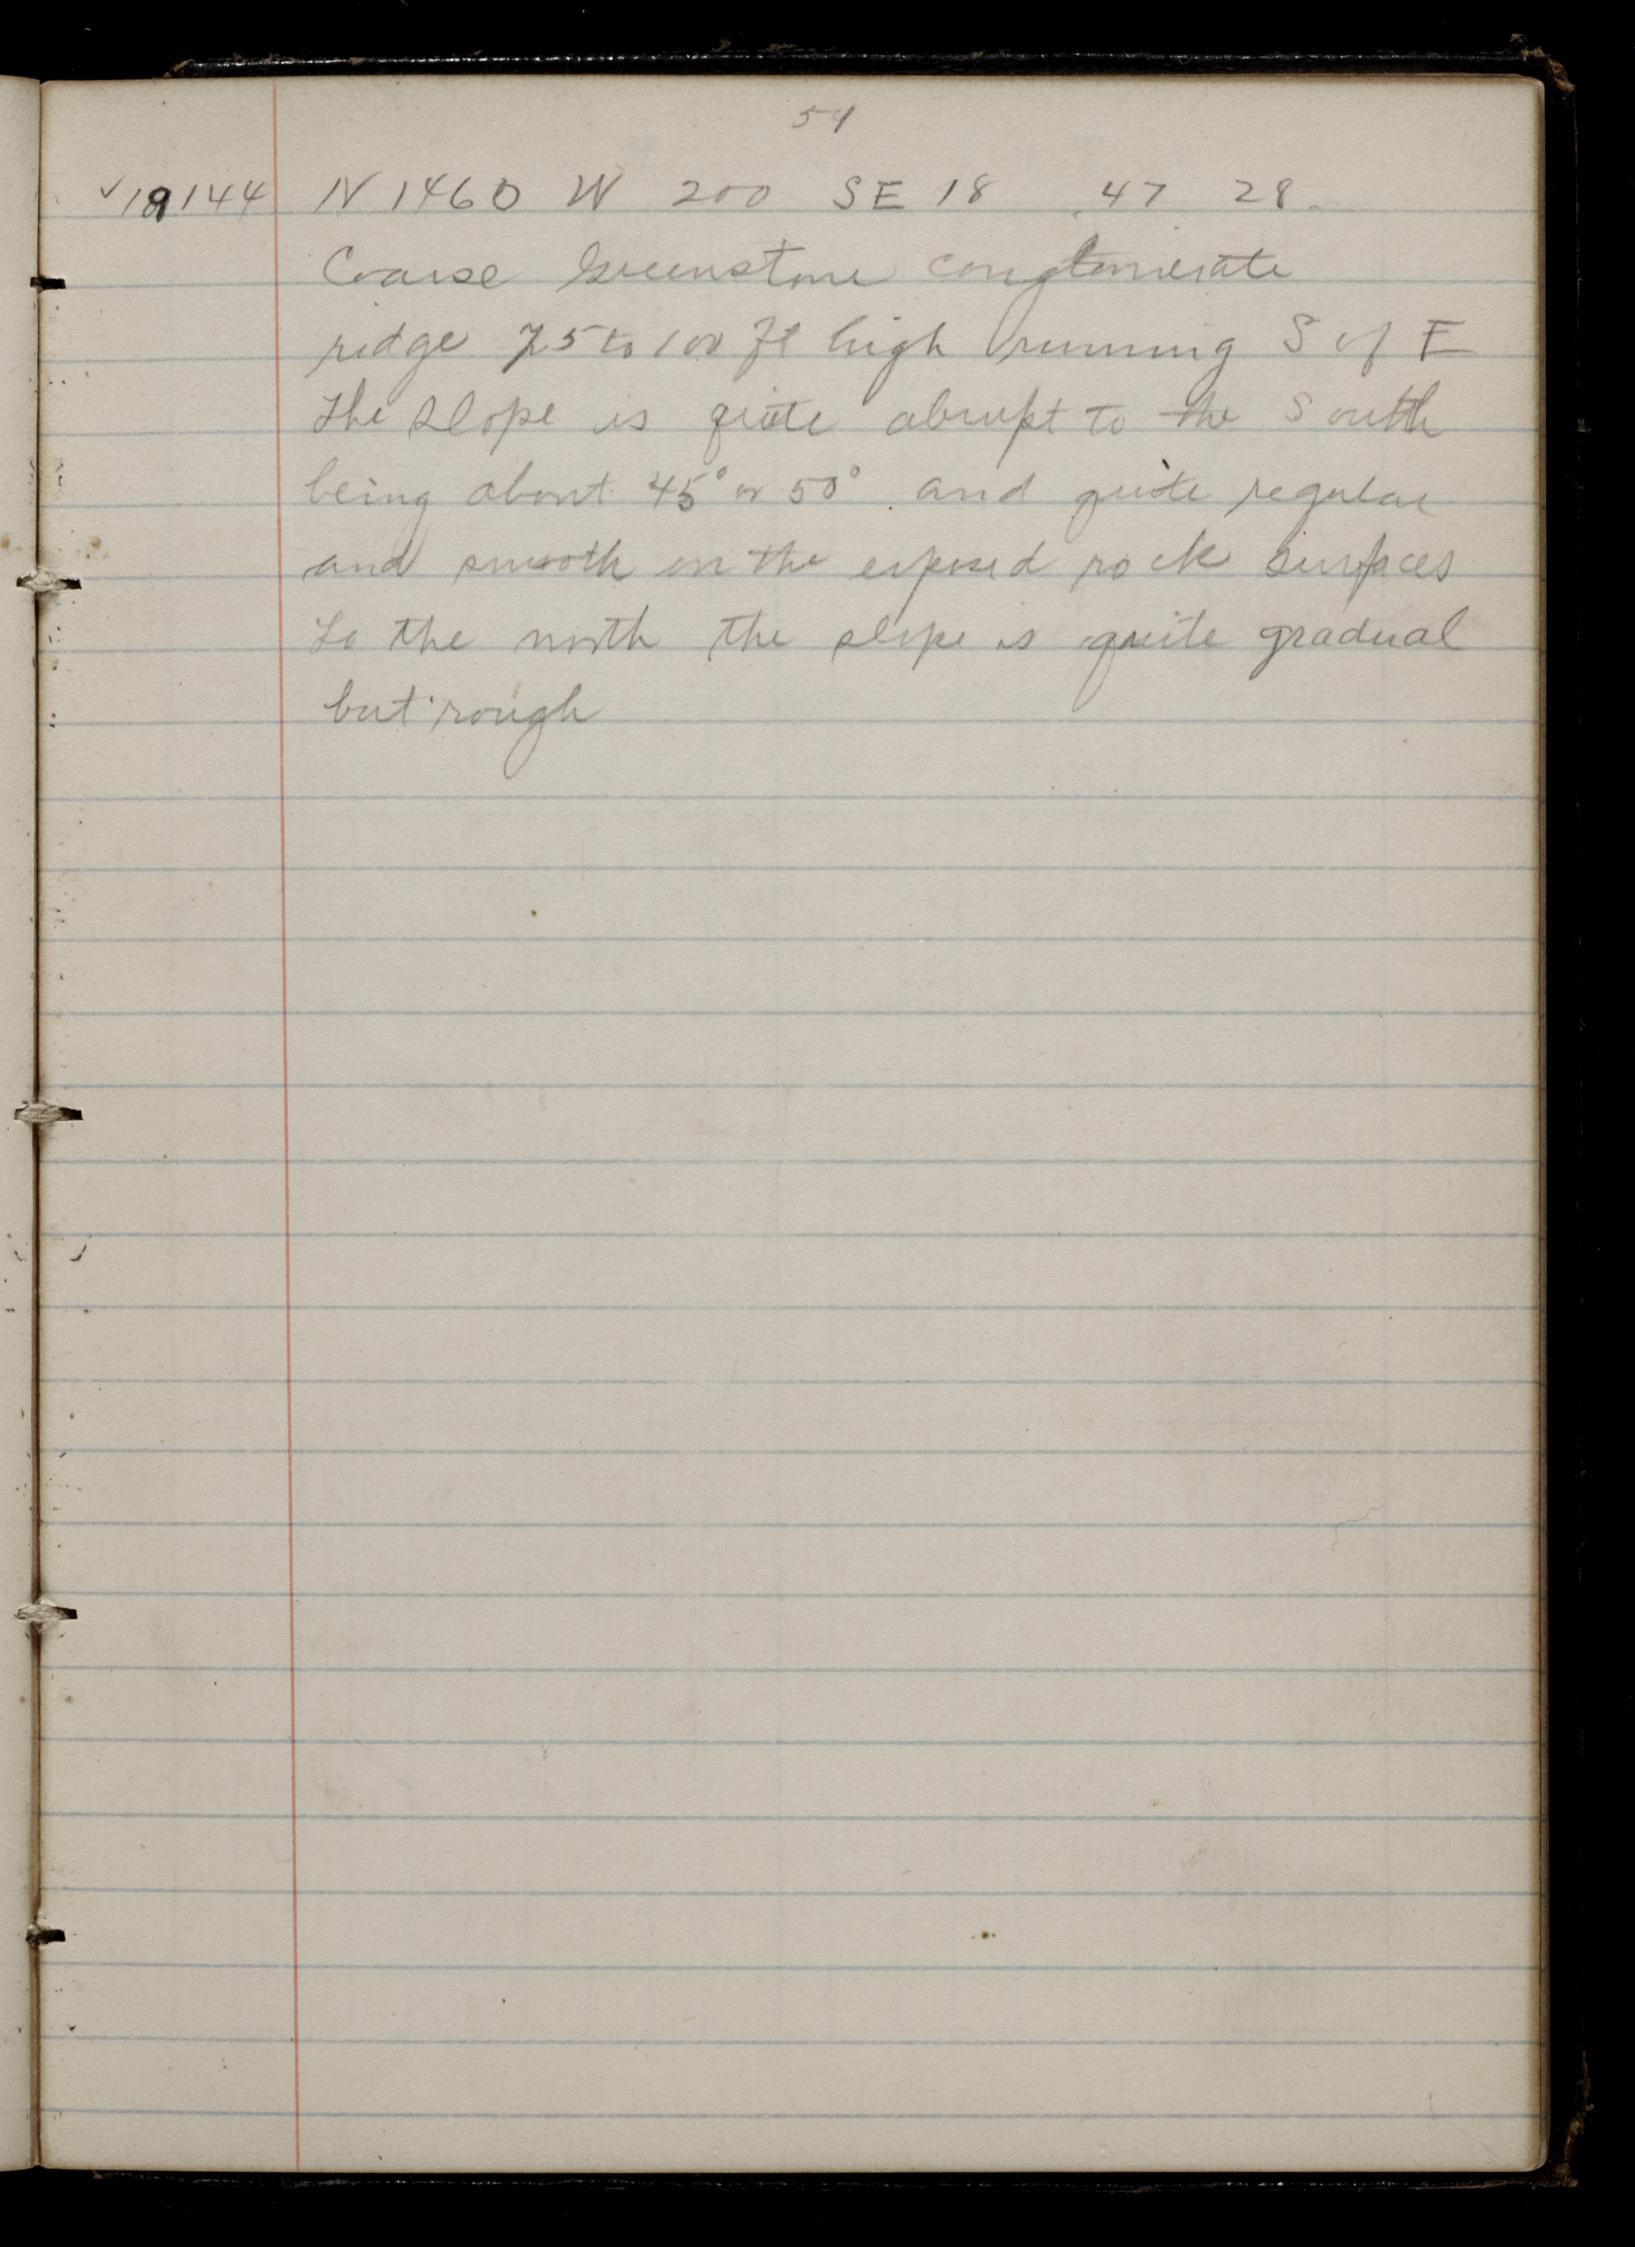 54
✓19144 N 1460 W 200 SE 18 47 28.
Coarse Greenstone conglomerate
ridge 75 to 100 ft high running S of E
The slope is quite abrupt to the South
being about 45° or 50° and quite regular
and smooth on the exposed rock surfaces
To the north the slope is quite gradual
but rough